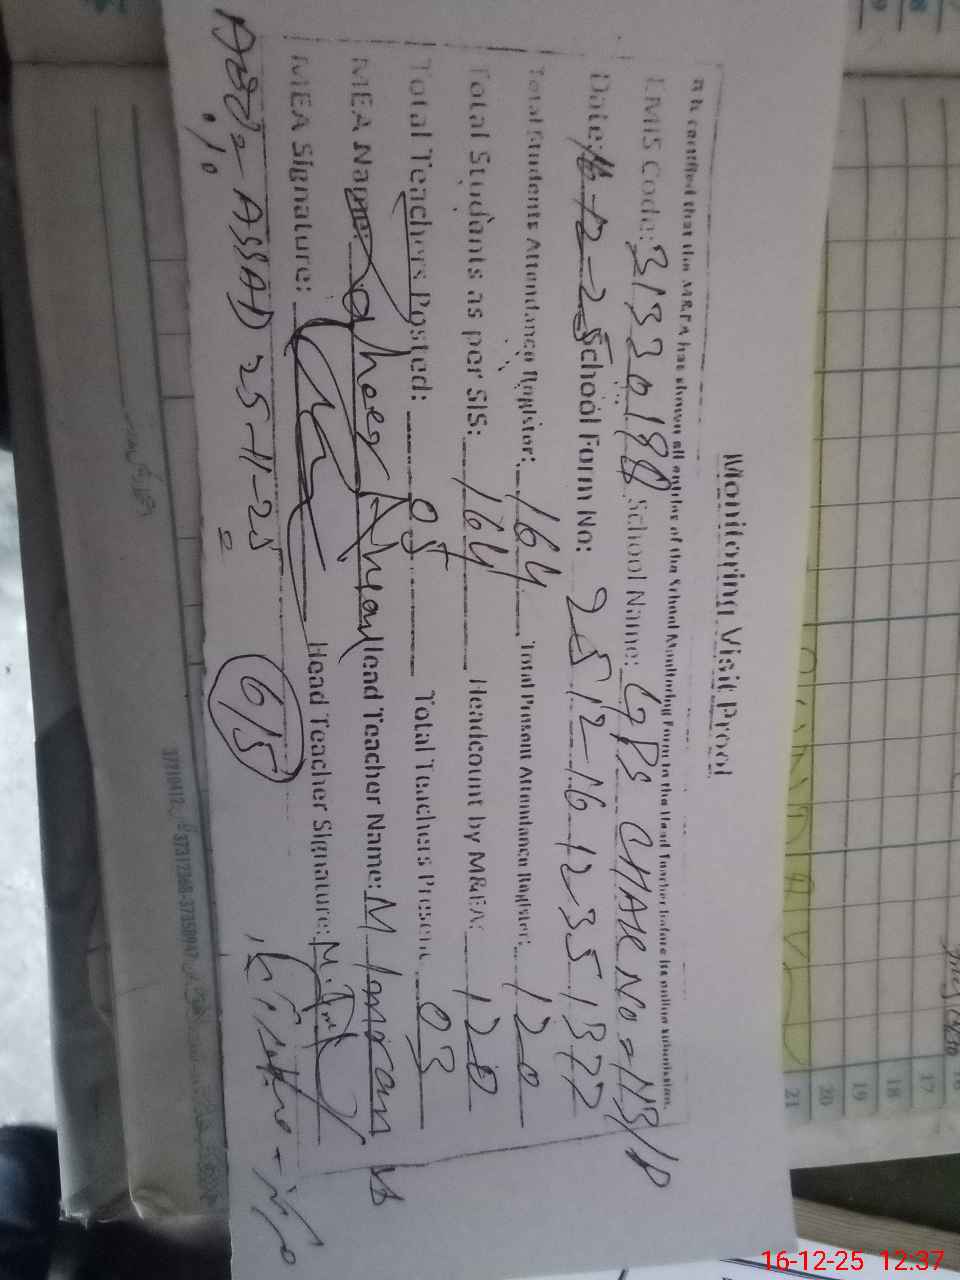 Monitoring Visit Proof
certified that the M&EA has shown all entries of the School Monitoring Form to the Head Teacher before its online submission.
EMIS Code: 31320188 School Name: GPS CHAK No = 113/P
Date: 16-12-25 School Form No: 2512-1612351377
Total Students Attendance Register: 164 Total Present Attendance Register: 120
Total Students as per SIS: 164 Headcount by M&EA: 120
Total Teachers Posted: 05 Total Teachers Present 03
MEA Name: Head Teacher Name: M Imran
MEA Signature: Head Teacher Signature:
ASSAD 25-11-25 6/5
21
20
19
18
17
16-12-25 12:37